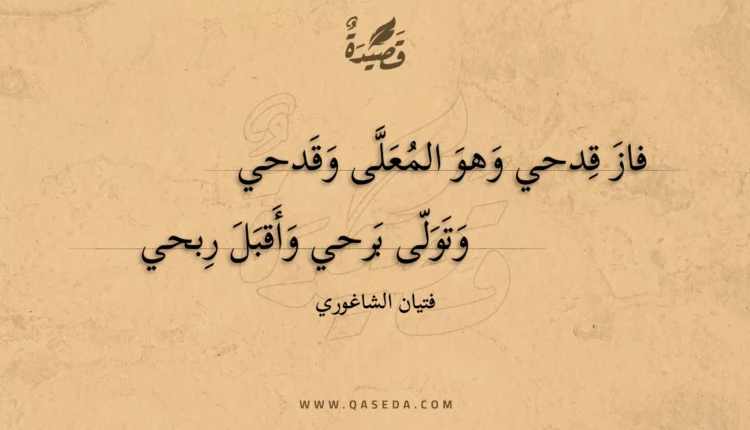 قَصِيْدَةٌ
فازَ قِدحي وَهوَ المُعَلَّى وَقَدحي
وَتَوَلّى بَرحي وَأَقبَلَ رِبحي
فتيان الشاغوري
WWW.QASEDA.COM